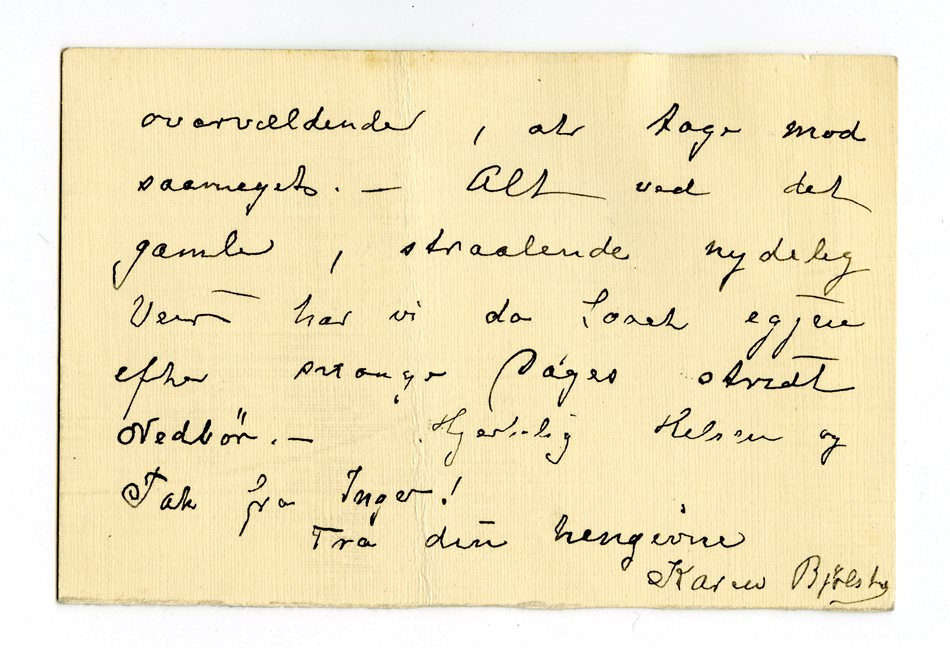 overvældende, at tage mod
saameget. — Alt ved det
gamle, straalende nydelig
Veir har vi da faaet igjen
efter mange Dages stridt
Nedbör. — Hjertelig Hilsen og
Tak fra Inger!
Fra din hengivne
Karen Bjølstad